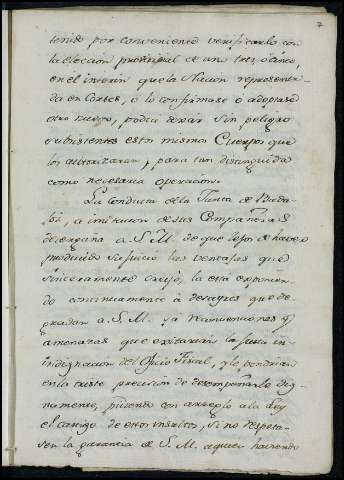 7
tenido por conveniente verificarlo con
la eleccion provisional de uno tres, ó cinco,
en el interin que la Nacion representa-
da en Cortes, ó lo confirmase ó adoptase
otro nuevo, podia dexar sin peligro
subsistentes estos mismos Cuerpos que
los autorizaran, para tan distinguida
como necesaria operacion.
La conducta de la Junta de Bada-
joz, a imitacion de sus Compañeras
desengaña a S. M. de que lejos de haver
producido su juicio las ventajas que
sinceramente creyó, la está exponien-
do continuamente á desayres que de-
gradan a S. M. ya reconvenciones y
amenazas que excitarian la justa in-
indignacion del Oficio Fiscal, y le pondrian
en la triste precision de desempeñarlo dig-
namente, pidiendo con arreglo a la Ley
el castigo de estos insultos, si no respeta-
sen la garantia de S. M. aquel haviendo